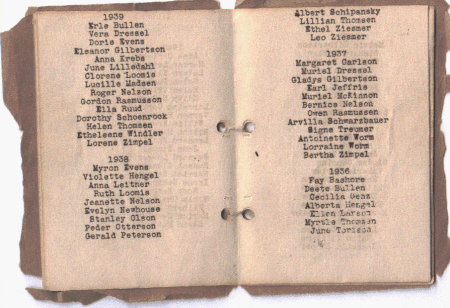 1939
Erle Bullen
Vera Dressel
Doris Evens
Eleanor Gilbertson
Anna Krebs
June Lilledahl
Clorene Loomis
Lucille Madsen
Roger Nelson
Gordon Rasmusson
Ella Ruud
Dorothy Schoenrock
Helen Thomsen
Etheleene Windler
Lorene Zimpel
1938
Myron Evens
Violette Hengel
Anna Leitner
Ruth Loomis
Jeanette Nelson
Evelyn Newhouse
Stanley Olson
Peder Otterson
Gerald Peterson
Albert Schipansky
Lillian Thomsen
Ethel Ziesmer
Leo Ziesmer
1937
Margaret Carlson
Muriel Dressel
Gladys Gilbertson
Earl Jeffris
Muriel McKinnon
Bernice Nelson
Owen Rasmussen
Arvilla Schwarzbauer
Signe Treumer
Antoinette Worm
Lorraine Worm
Bertha Zimpel
1936
Fay Bashore
Deete Bullen
Cecilia Genz
Alberta Hengel
Ellen Larson
Myrtle Thomsen
June